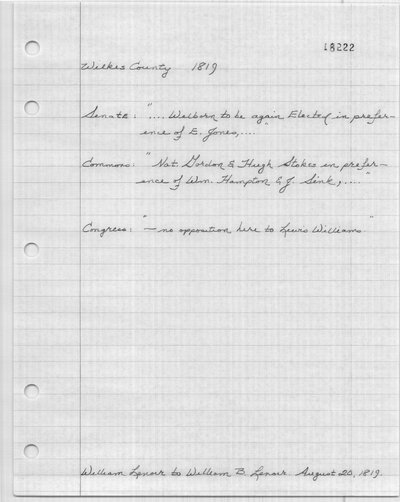 18222
Wilkes County 1819
Senate: ".... Welborn to be again Elected in prefer-
ence of E. Jones,...."
Commons: "Nat. Gordon & Hugh Stokes in prefer-
ence of Wm. Hampton & J. Sink,...."
Congress: "— no opposition here to Lewis Williams"
William Lenoir to William B. Lenoir August 20, 1819.